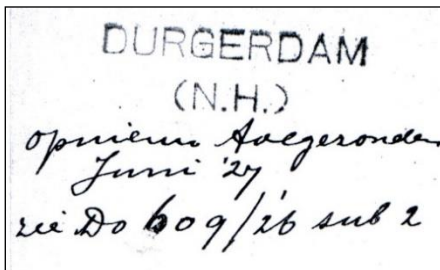 DURGERDAM
(N.H.)
opnieuw toegezonden
Juni '27
zie Do 609/'26 sub 2